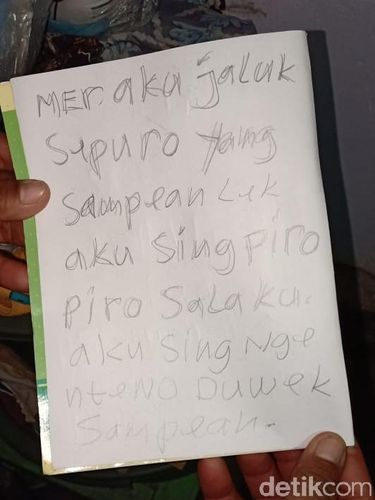 MER. aku jaluk
Sepuro Yang
Sampean Lek
aku Sing piro
piro Salaku.
aku Sing Nge
nteNo Duwek
Sampean.
detikcom